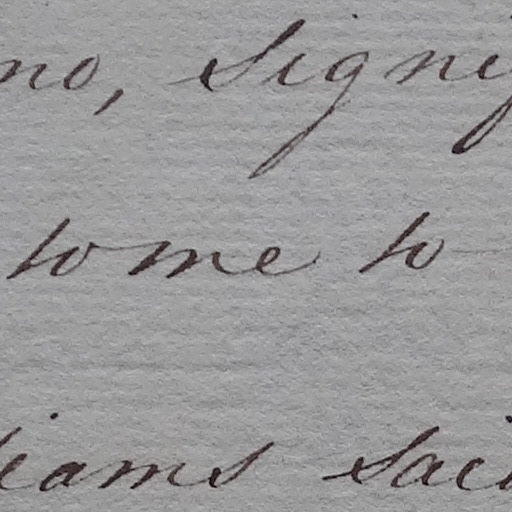 no, Signi
to me to
iams sai